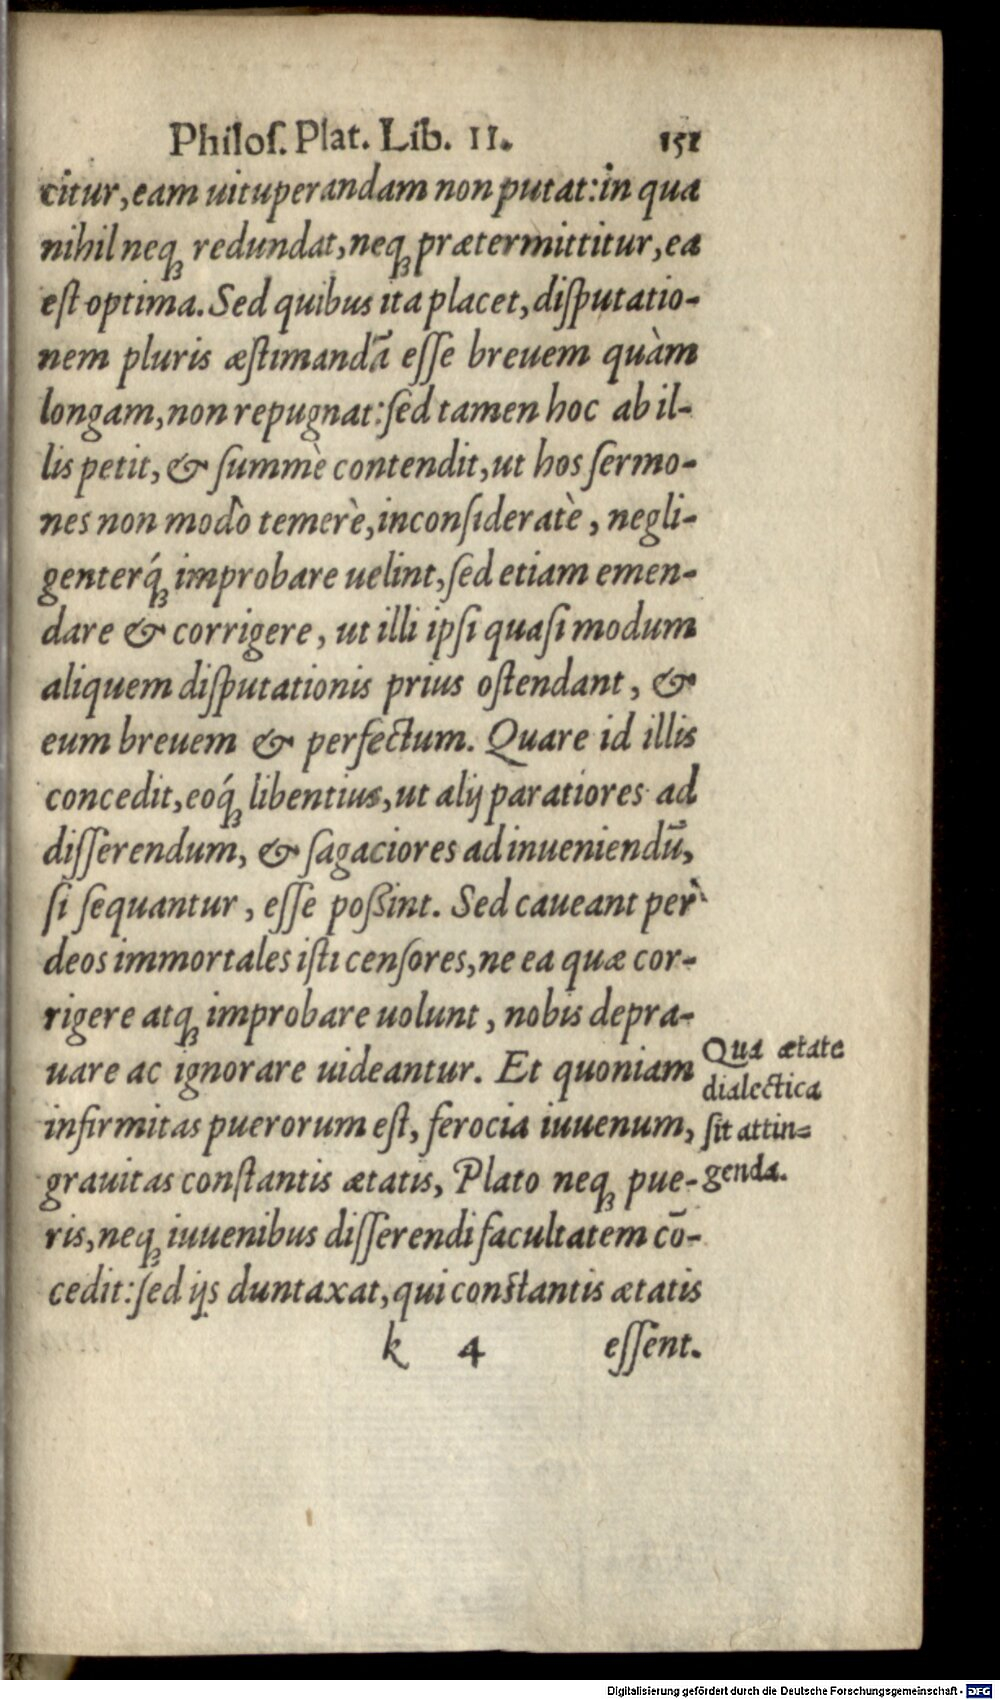 Philoſ. Plat. Lib. II. 151
citur, eam uituperandam non putat: in qua
nihil neqꝫ redundat, neqꝫ prætermittitur, ea
eſt optima. Sed quibus ita placet, diſputatio-
nem pluris æſtimandā eſſe breuem quàm
longam, non repugnat: ſed tamen hoc ab il-
lis petit, & ſummè contendit, ut hos ſermo-
nes non modò temerè, inconſideratè, negli-
genterq́ꝫ improbare uelint, ſed etiam emen-
dare & corrigere, ut illi ipſi quaſi modum
aliquem diſputationis prius oſtendant, &
eum breuem & perfectum. Quare id illis
concedit, eoq́ꝫ libentius, ut alij paratiores ad
diſſerendum, & ſagaciores ad inueniendū,
ſi ſequantur, eſſe poßint. Sed caueant per
deos immortales iſti cenſores, ne ea quæ cor-
rigere atqꝫ improbare uolunt, nobis depra-
uare ac ignorare uideantur. Et quoniam
infirmitas puerorum eſt, ferocia iuuenum,
grauitas conſtantis ætatis, Plato neqꝫ pue-
ris, neqꝫ iuuenibus diſſerendi facultatem cō-
cedit: ſed ijs duntaxat, qui conſtantis ætatis
Qua ætate
dialectica
ſit attin-
genda.
k 4 eſſent.
Digitalisierung gefördert durch die Deutsche Forschungsgemeinschaft - DFG